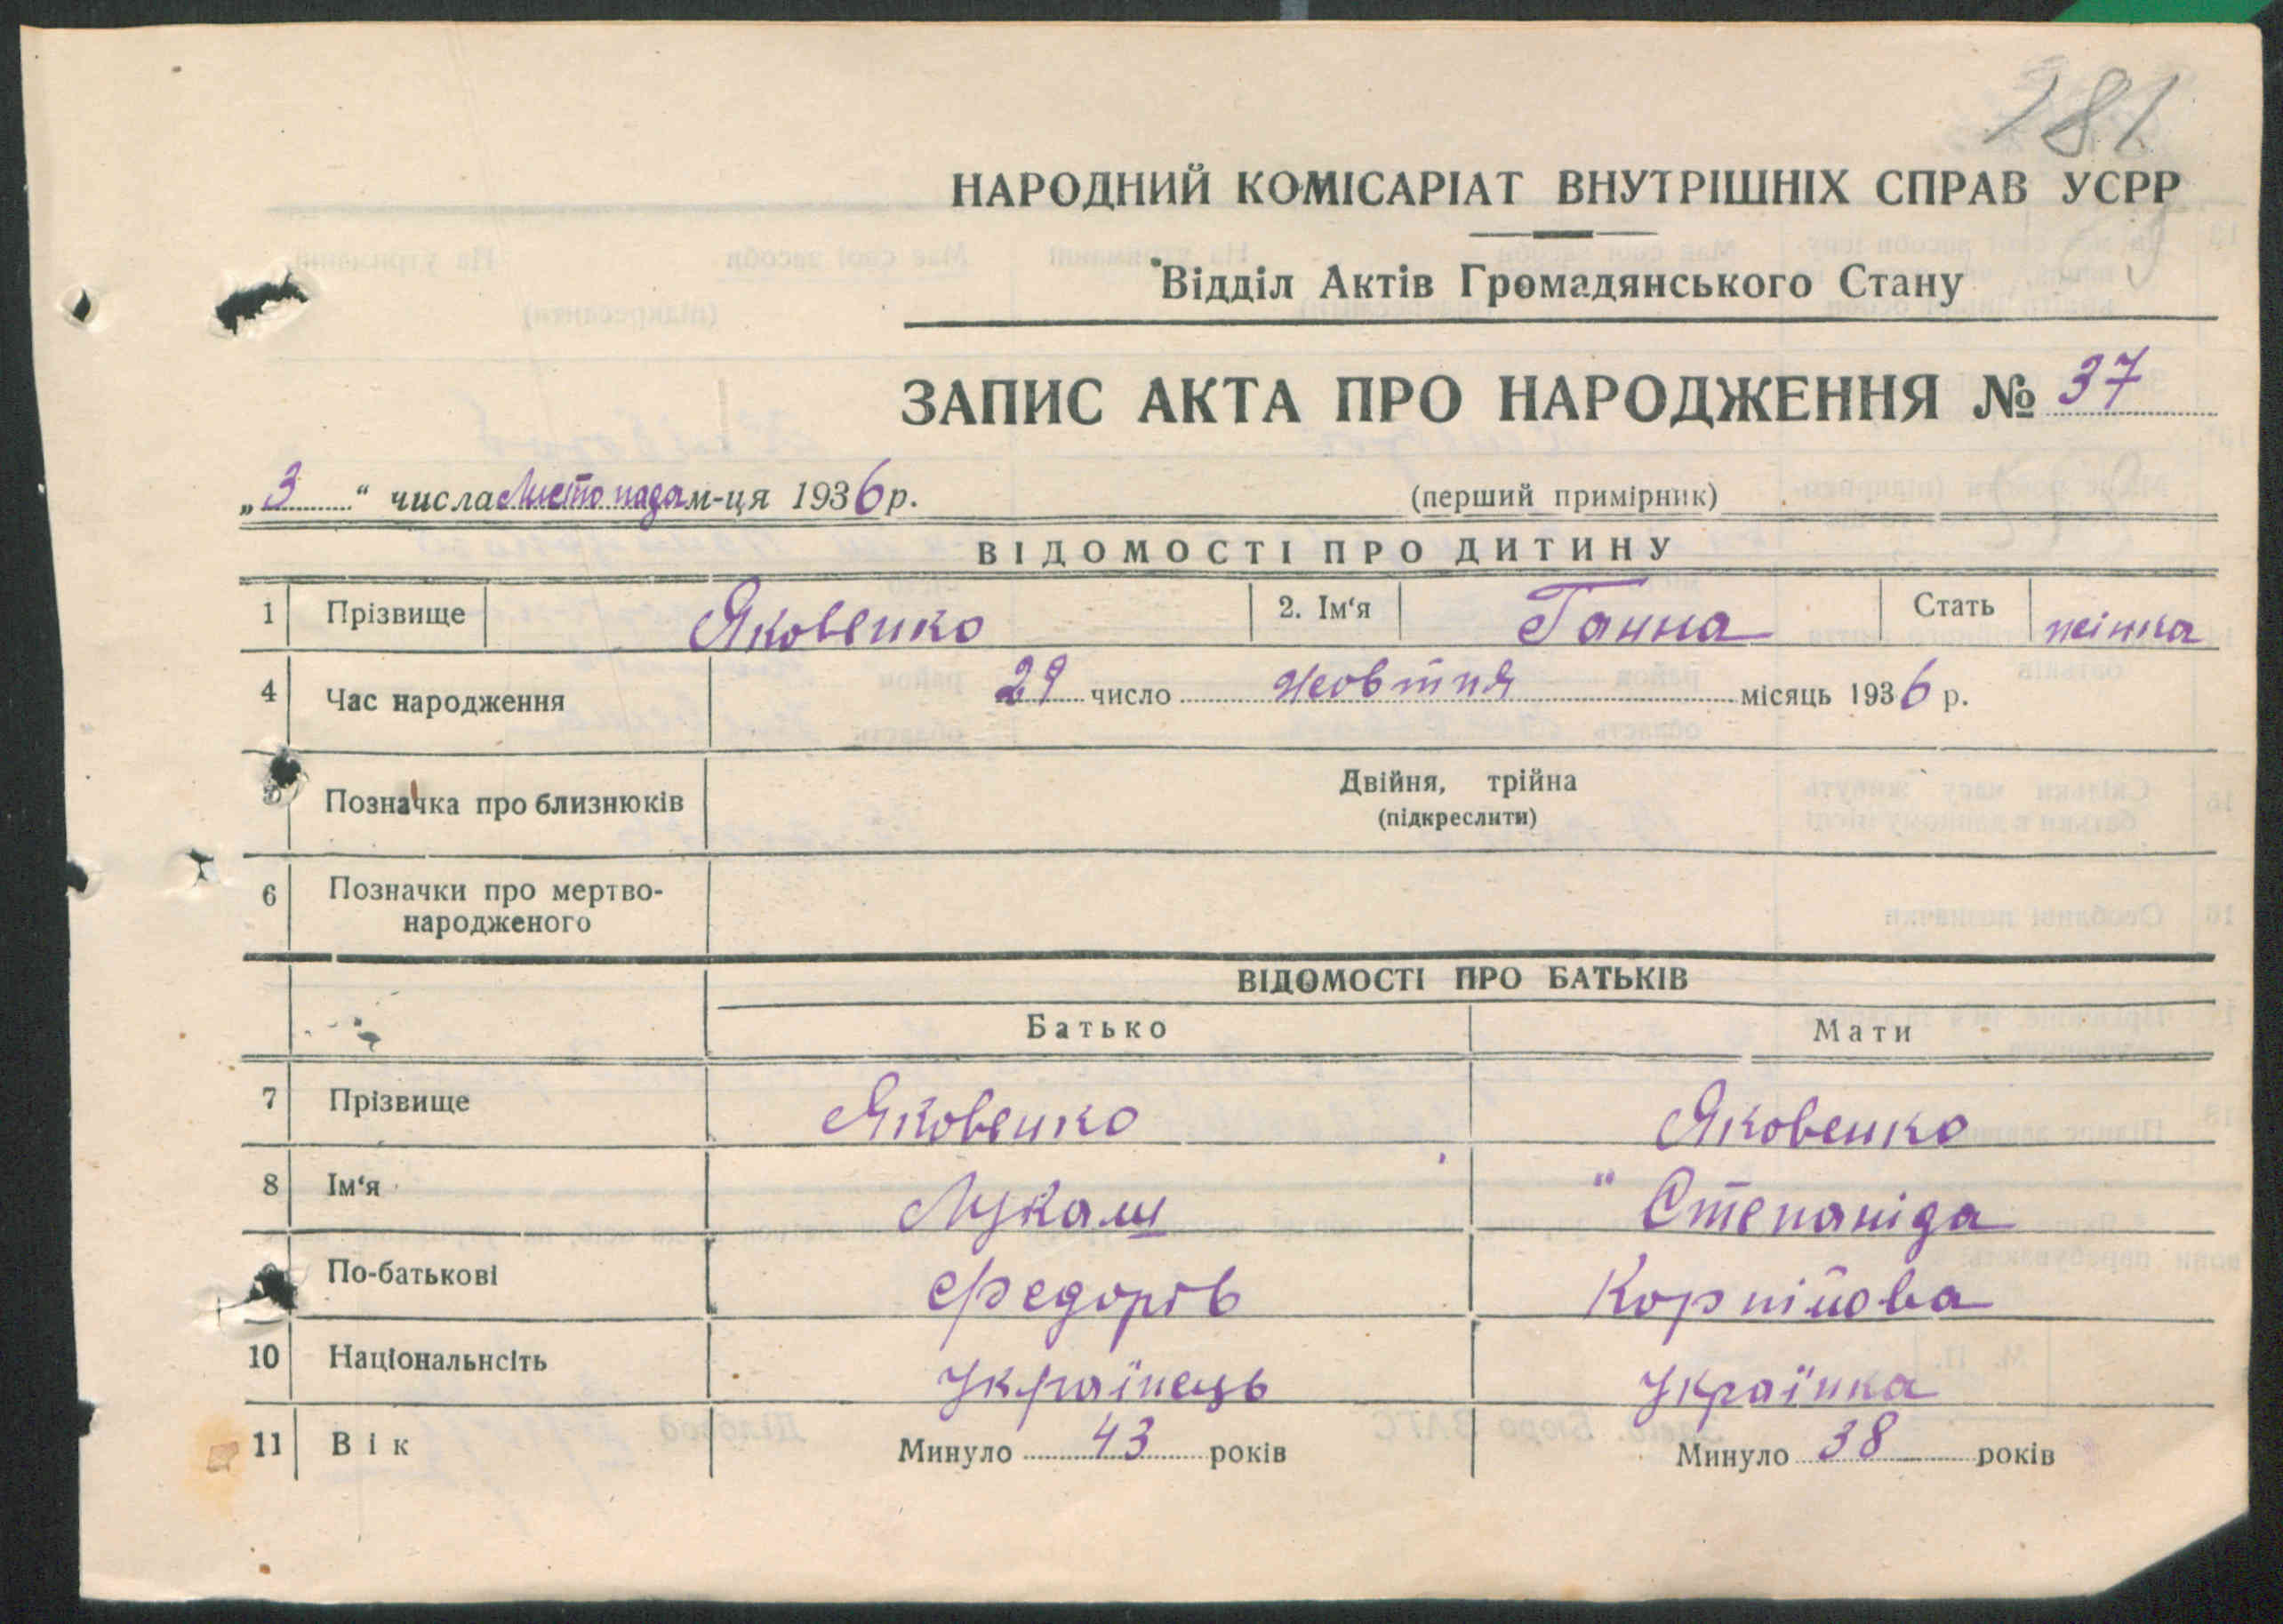 181
НАРОДНИЙ КОМІСАРІАТ ВНУТРІШНІХ СПРАВ УСРР
Відділ Актів Громадянського Стану
ЗАПИС АКТА ПРО НАРОДЖЕННЯ № 37
„3“ числа Листопада м-ця 1936 р. (перший примірник)
ВІДОМОСТІ ПРО ДИТИНУ
1 Прізвище Яковенко 2. Ім‘я Ганна Стать жінка
4 Час народження 29 число жовтня місяць 1936 р.
5 Позначка про близнюків Двійня, трійна
(підкреслити)
6 Позначки про мертво-
народженого
ВІДОМОСТІ ПРО БАТЬКІВ
Батько Мати
7 Прізвище Яковенко Яковенко
8 Ім‘я Лукаш " Степаніда
9 По-батькові Федорів Корнійова
10 Національнсіть Українець Українка
11 Вік Минуло 43 років Минуло 38 років